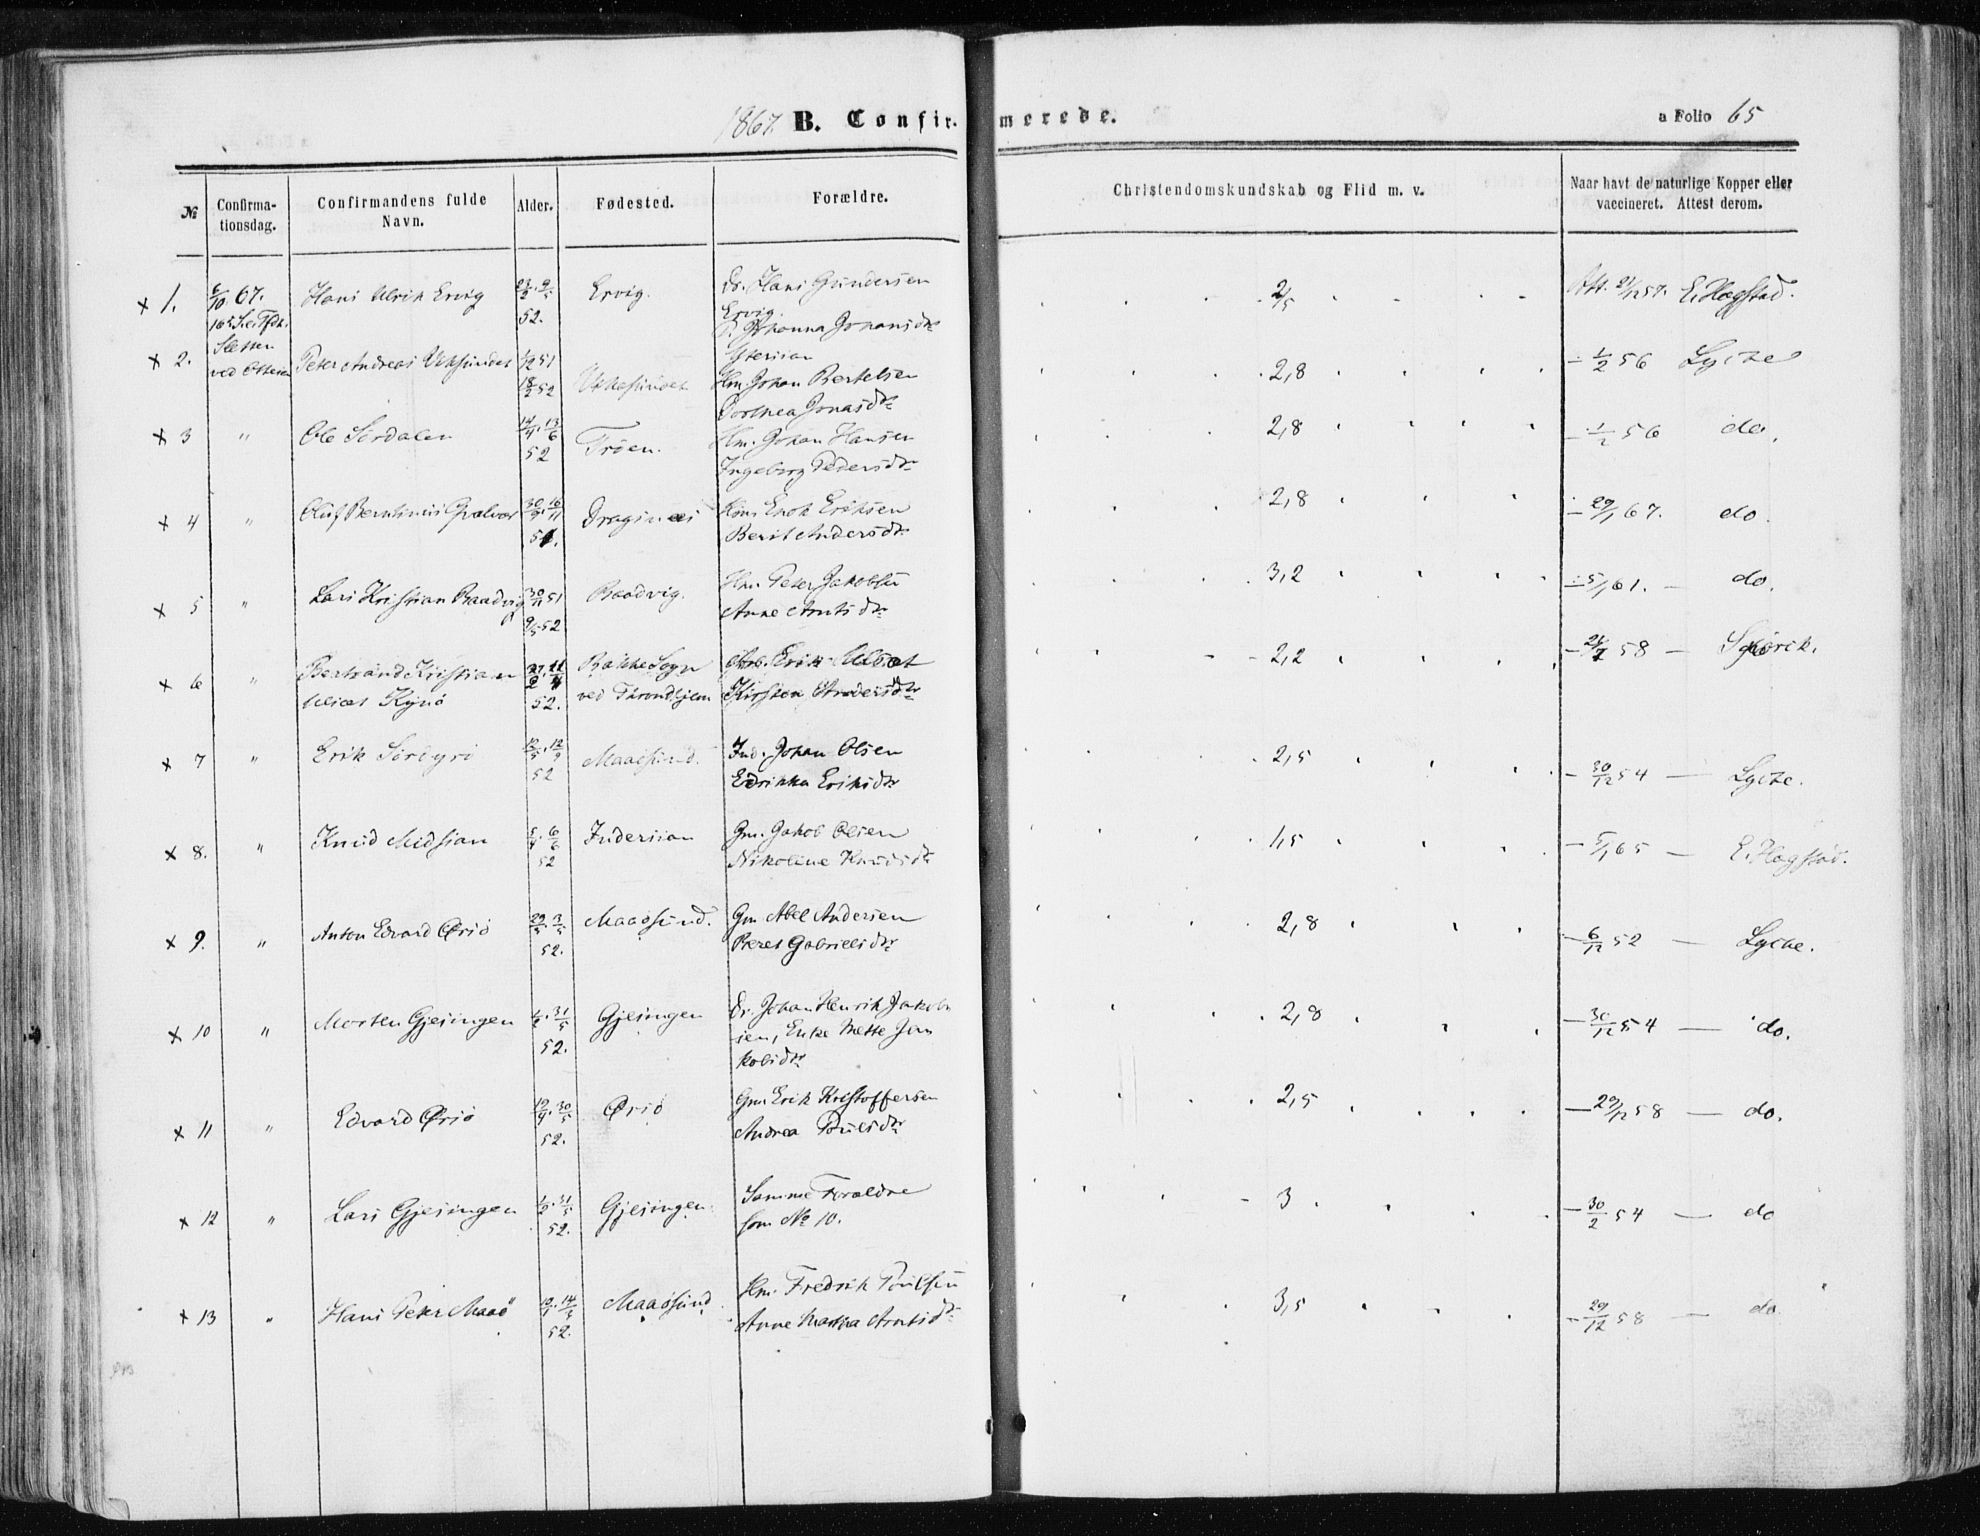 1867. B. Confirmerede. a Folio 65
№ Confirmationsdag. Confirmandens fulde Navn. Alder. Fødested. Forældre. Christendomskundskab og Flid m. v. Naar havt de naturlige Kopper eller vaccineret. Attest derom.
x 1. 6/10 67. Hans Ulrik Ervig 52. Ervig. Hans Gundersen Ervig. Johanna Johansdtr 2/5 Att. 57. E. Hagstad.
x 2. ved Peter Andreas 52 Hm. Johan Bertelsen Dorthea Jonasdtr 2,8 – 1/2 56 Lyche
x 3 " Ole Sørdalen 14/4. 13/6 52 Trøen. Hm. Johan Hansen Ingeborg Pedersdtr 2,8 – 1/2 56 do.
x 4 " Oluf Berntinius 30/9. 16/11 51. Dragsnæs Enok Eriksen Berit Andersdtr 2,8 – 29/1 67. do.
x 5 " Lars Kristian Baadvig 30/11 51 9/5 52 Baadvig. Hm. Peter Jakobsen Anne Arntsdtr 3,2 – 5/1 61. – do.
x 6 " Bertrand Kristian 52. Bakke Sogn ved Throndhjem Erik Kirsten Andersdtr 2,2 – 58 –
x 7 " Erik 52 Maasund. Ind. Johan Olsen Edrikka Eriksdtr 2,5 – 30/12 54 — Lyche.
x 8. " Knud Midsian 6/6 52 Indersian Gm. Jakob Olsen Nikoline Knudsdtr 1,5 – 5/1 65 — E. Hagstad.
x 9. " Anton Edvard Ørsø 52. Maasund. Gm Abel Andersen Beret Gabrielsdtr 2,8 – 6/12 52 — Lyche.
x 10 " Morten Gjesingen 1/2. 31/5 52. Gjesingen Johan Henrik Jakobsen, Enke Mette Jakobsdtr 2,8 – 30/12 54 — do.
x 11 " Edvard Ørsø 30/5 52. Ørsø Gm Erik Kristoffersen Andrea Poulsdtr 2,5 – 29/12 58 — do.
x 12 " Lars Gjesingen 1/2. 31/5 52. Gjesingen. Samme Forældre som № 10. 3 – 30/2 54 — do
x 13 " Hans Peter Maasø 52. Maasund Hm. Fredrik Poulsen Anne Arntsdtr 3,5 – 29/12 58 — do.